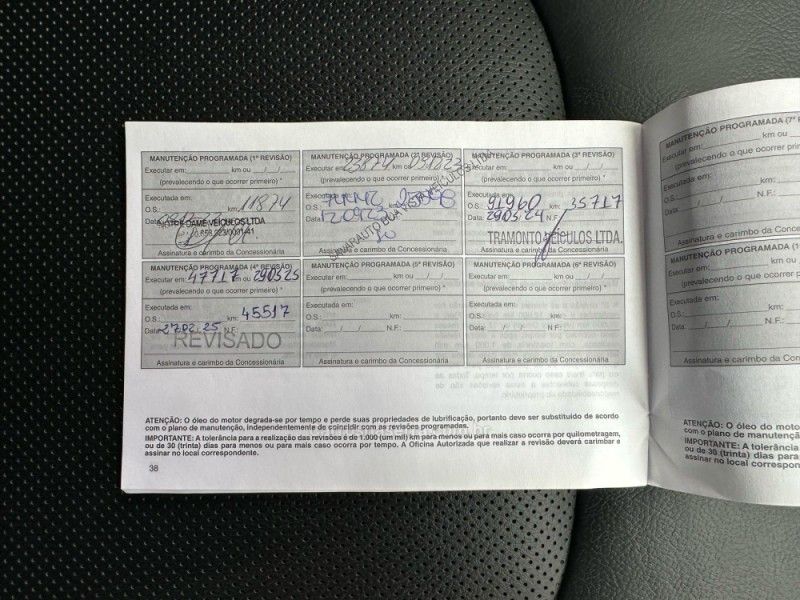 MANUTENÇÃO PROGRAMADA (1ª REVISÃO)
Executar em: km ou / /
(prevalecendo o que ocorrer primeiro) *
Executada em:
O.S.: km: 11874
Data
NOTRE DAME VEICULOS LTDA
Assinatura e carimbo da Concessionária
MANUTENÇÃO PROGRAMADA (2ª REVISÃO)
Executar em: 23874 km ou
(prevalecendo o que ocorrer primeiro)
Executada em:
O.S.:
Data 120923
Assinatura e carimbo da Concessionária
MANUTENÇÃO PROGRAMADA (3ª REVISÃO)
Executar em: km ou / /
(prevalecendo o que ocorrer primeiro) *
Executada em:
O.S.: 91960 km: 35717
Data: 290524 N.F.:
TRAMONTO VEICULOS LTDA.
Assinatura e carimbo da Concessionária
MANUTENÇÃO PROGRAMADA (4ª REVISÃO)
Executar em: 47717 km ou 290525
(prevalecendo o que ocorrer primeiro) *
Executada em:
O.S.: km: 45517
Data: 2702.25 N.F.:
REVISADO
Assinatura e carimbo da Concessionária
MANUTENÇÃO PROGRAMADA (5ª REVISÃO)
Executar em: km ou / /
(prevalecendo o que ocorrer primeiro) *
Executada em:
O.S.: km:
Data: / / N.F.:
Assinatura e carimbo da Concessionária
MANUTENÇÃO PROGRAMADA (6ª REVISÃO)
Executar em: km ou / /
(prevalecendo o que ocorrer primeiro) *
Executada em:
O.S.: km:
Data: / / N.F.:
Assinatura e carimbo da Concessionária
ATENÇÃO: O óleo do motor degrada-se por tempo e perde suas propriedades de lubrificação, portanto deve ser substituído de acordo
com o plano de manutenção, independentemente de coincidir com as revisões programadas.
IMPORTANTE: A tolerância para a realização das revisões é de 1.000 (um mil) km para menos ou para mais caso ocorra por quilometragem,
ou de 30 (trinta) dias para menos ou para mais caso ocorra por tempo. A Oficina Autorizada que realizar a revisão deverá carimbar e
assinar no local correspondente.
38
MANUTENÇÃO PROGRAMADA (7ª
Executar em: km ou
(prevalecendo o que ocorrer prim
Executada em:
O.S.: km:
Data: / / N.F.:
Assinatura e carimbo da Concess
MANUTENÇÃO PROGRAMADA (1
Executar em: km ou
(prevalecendo o que ocorrer p
Executada em:
O.S.: km:
Data: / / N.F.:
Assinatura e carimbo da Con
ATENÇÃO: O óleo do moto
com o plano de manutençã
IMPORTANTE: A tolerância
ou de 30 (trinta) dias para
assinar no local correspon